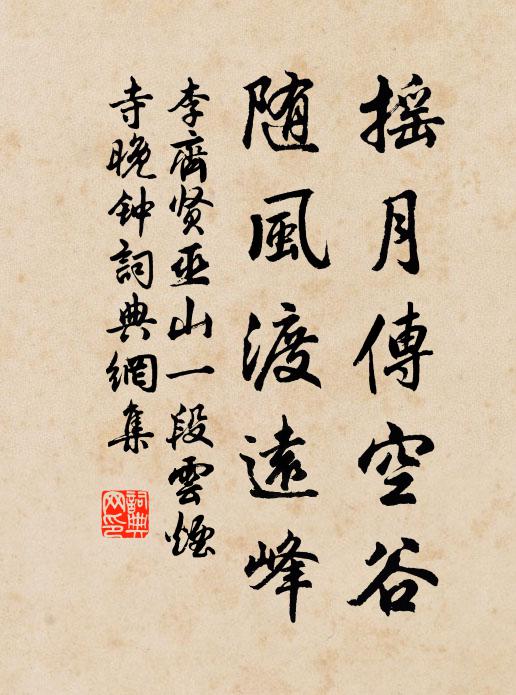 揺月傳空谷
随風渡遠峰
李齊賢巫山一段雲煙
寺晚钟詞典網集
詞典網印